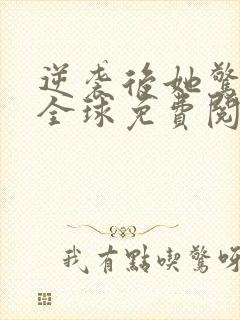 逆袭後她驚
全球免費閱
我有點喫驚呀